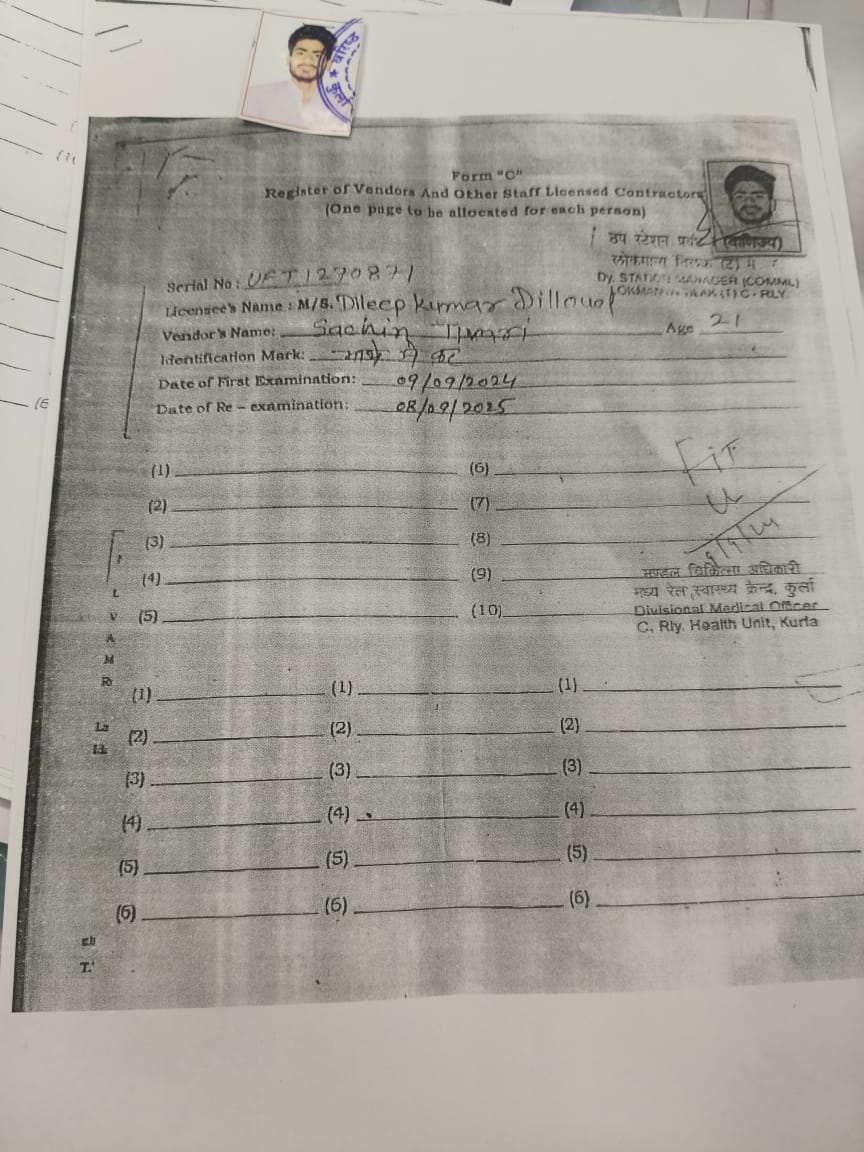 कुर्ला ★ वरिष्ठ
Form "C"
Register of Vendors And Other Staff Licensed Contractors
(One page to be allocated for each person)
उप स्टेशन (वाणिज्य)
लोकमान्य तिलक (ट) म
Dy. STATION MANAGER (COMML)
LOKMANYA TILAK (T) C-RLY.
Serial No :
Licensee's Name : M/S. Dileep kumar
Vendor's Name: Sachin Tiwari Age 21
Identification Mark:
Date of First Examination: 09/09/2024
Date of Re - examination: 08/09/2025
(1) (6) FiT
(2) (7)
(3) (8) 9/9/24
(4) (9)
(5) (10)
मण्डल चिकित्सा अधिकारी
मध्य रेल स्वास्थ्य केन्द्र, कुर्ला
Divisional Medical Officer
C. Rly. Health Unit, Kurla
L
V
A
M
(1) (1) (1)
(2) (2) (2)
(3) (3) (3)
(4) (4) (4)
(5) (5) (5)
(6) (6) (6)